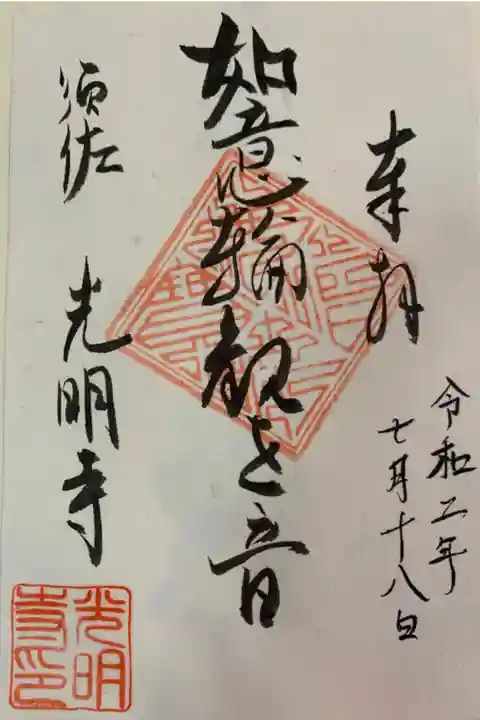 奉拝
令和二年
七月十八日
如意輪観世音
須佐 光明寺
光明
寺印